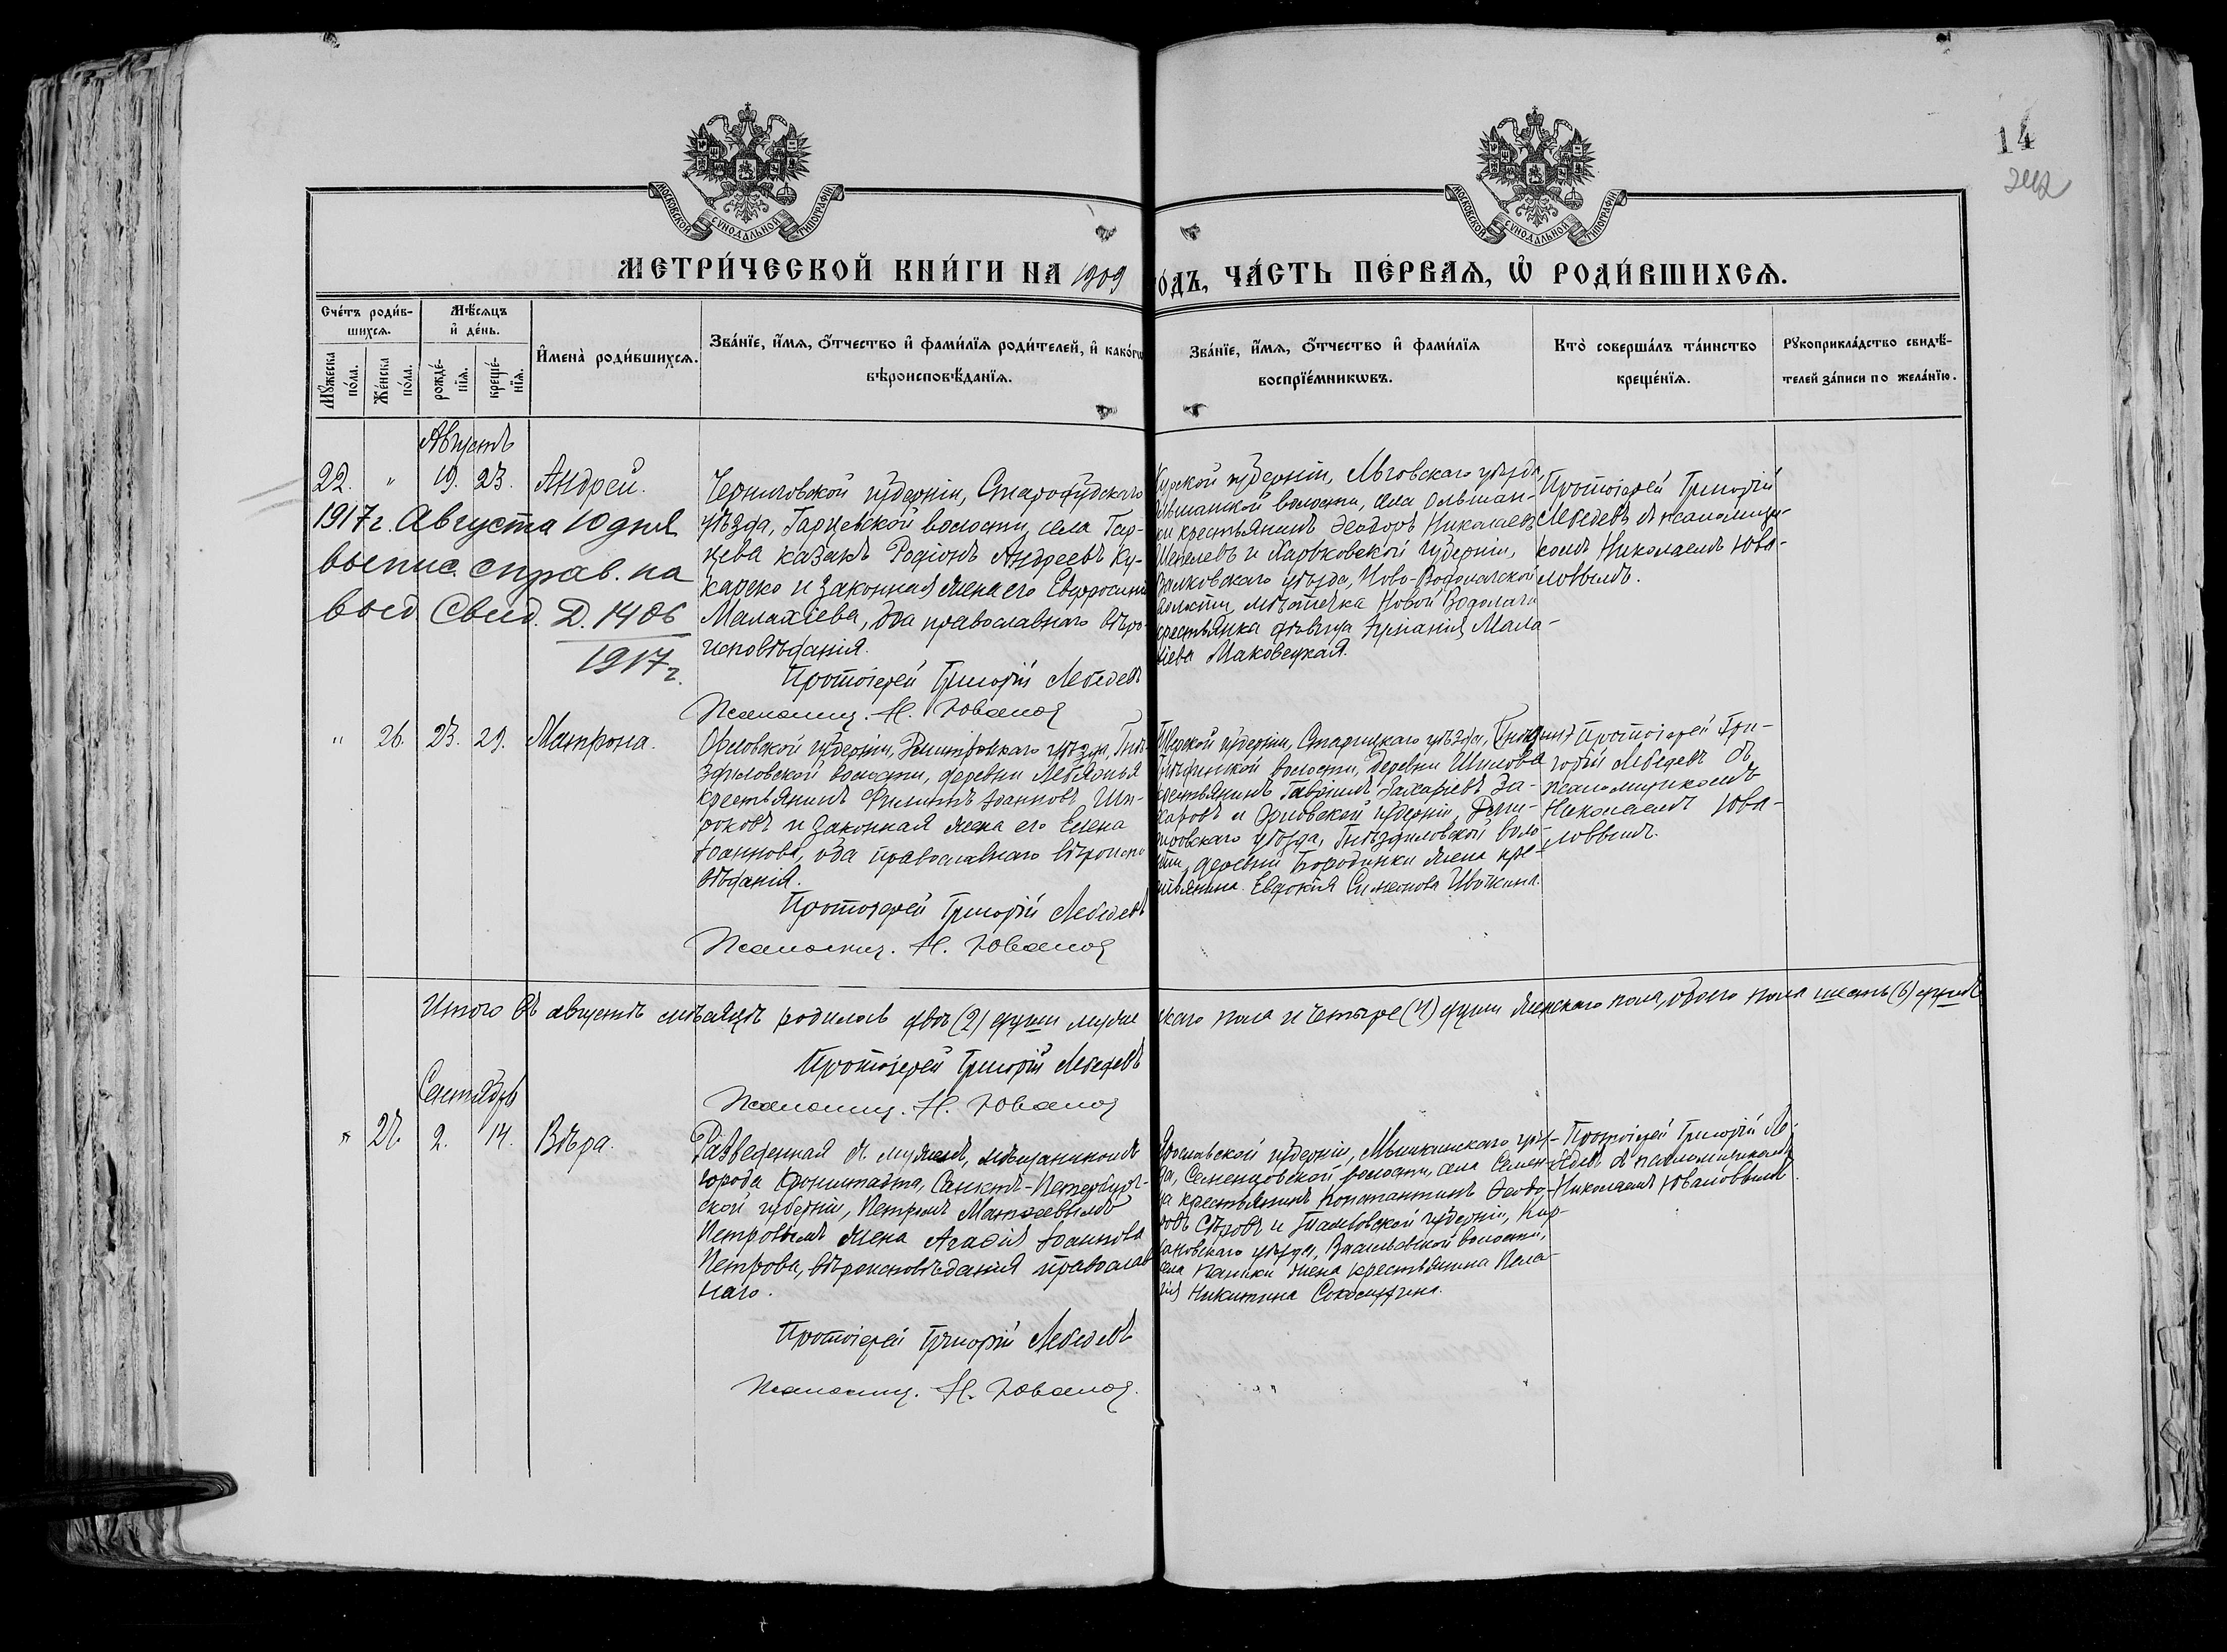 14
242
МОСКОВСКОЙ СУНОДАЛЬНОЙ ТИПОГРАФІИ
МОСКОВСКОЙ СУНОДАЛЬНОЙ ТИПОГРАФІИ
МЕТРИ́ЧЕСКОЙ КНИ́ГИ НА 1909
ГО́ДЪ, ЧА́СТЬ ПЕ́РВАѦ, Ѡ҆ РОДИ́ВШИХСѦ.
Сче́тъ роди́в-
шихсѧ.
Мꙋ́жеска по́ла.
Же́нска по́ла.
Мѣ́сѧцъ
и҆ де́нь.
рожде́-нїѧ.
креще́-нїѧ.
И҆мена̀ роди́вшихсѧ.
Зва́нїе, и҆́мѧ, ѻ҆́тчество и҆ фами́лїѧ роди́телей, и҆ како́гѡ
вѣроисповѣ́данїѧ.
Зва́нїе, и҆́мѧ, ѻ҆́тчество и҆ фами́лїѧ
воспрїе́мникѡвъ.
Кто̀ соверша́лъ та́инство
креще́нїѧ.
Рꙋкоприкла́дство свидѣ́-
телей за́писи по жела́нїю.
Августъ
22. " 19. 23. Андрей.
1917 г. Августа 10 дня
выпис. справ. на
выд. Свид. Д. 1406
1917 г.
Черниговской губерніи, Стародубскаго
уѣзда, Гарцевской волости, села Гар-
цева казакъ Родіонъ Андреевъ Ку-
карско и законная жена его Евфросинія
Малахіева, оба православнаго вѣро-
исповѣданія.
Протоіерей Григорій Лебедевъ
Псаломщ. Н. Ювалов
Курской губерніи, Льговскаго уѣзда,
Ольшанской волости, села Ольшан-
ки крестьянинъ Ѳеодоръ Николаевъ
Шепелевъ и Харьковской губерніи,
Валковскаго уѣзда, Ново-Водолагской
волости, мѣстечка Новой Водолаги
крестьянка дѣвица Іуліанія Мала-
хіева Маковецкая.
Протоіерей Григорій
Лебедевъ съ псаломщи-
комъ Николаемъ Юва-
ловымъ.
" 26. 23. 29. Матрона.
Орловской губерніи, Дмитровскаго уѣзда, Гнѣ-
здиловской волости, деревни Лебяжья
крестьянинъ Филиппъ Іоанновъ Ши-
роковъ и законная жена его Елена
Іоаннова, оба православнаго вѣроиспо-
вѣданія.
Протоіерей Григорій Лебедевъ
Псаломщ. Н. Ювалов
Тверской губерніи, Старицкаго уѣзда,
волости, деревни Шилова
крестьянинъ Гавріилъ Захаріевъ За-
харовъ и Орловской губерніи, Дми-
тровскаго уѣзда, Гнѣздиловской воло-
сти, деревни Бородинки жена кре-
стьянина Евдокія Симеонова Ивочкина.
Протоіерей Гри-
горій Лебедевъ съ
псаломщикомъ
Николаемъ Юва-
ловымъ.
Итого въ августѣ мѣсяцѣ родилось двѣ (2) души муже
скаго пола и четыре (4) души женскаго пола, обоего пола шесть (6) душъ
Протоіерей Григорій Лебедевъ
Псаломщ. Н. Ювалов
Сентябрь
" 27. 2. 14. Вѣра.
Разведенная съ мужемъ, мѣщаниномъ
города Кронштадта, Санктъ-Петербург-
ской губерніи, Петромъ Матѳеевымъ
Петровымъ жена Агаѳія Іоаннова
Петрова, вѣроисповѣданія православ
наго.
Протоіерей Григорій Лебедевъ
Псаломщ. Н. Ювалов.
Ярославской губерніи, Мышкинскаго уѣз-
да, Семенцовской волости, села Семен-
ца крестьянинъ Константинъ Ѳеодо-
ровъ Сѣровъ и Тамбовской губерніи, Кир-
сановскаго уѣзда, Васильевской волости,
села Паники жена крестьянина Пела-
гія Никитина
Протоіерей Григорій Ле-
бедевъ съ псаломщикомъ
Николаемъ Юваловымъ.